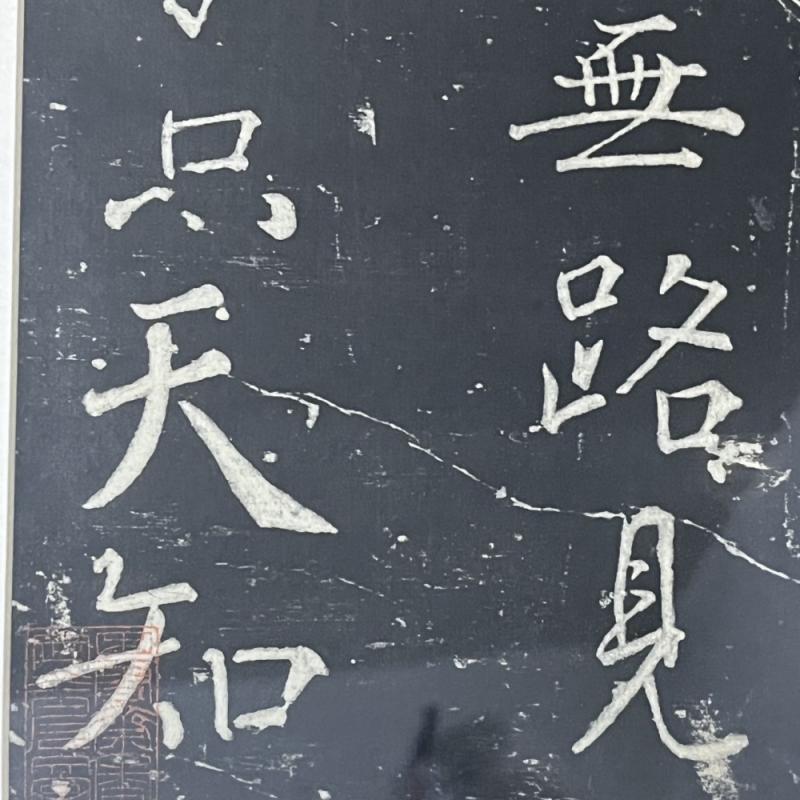 無路見
只天知